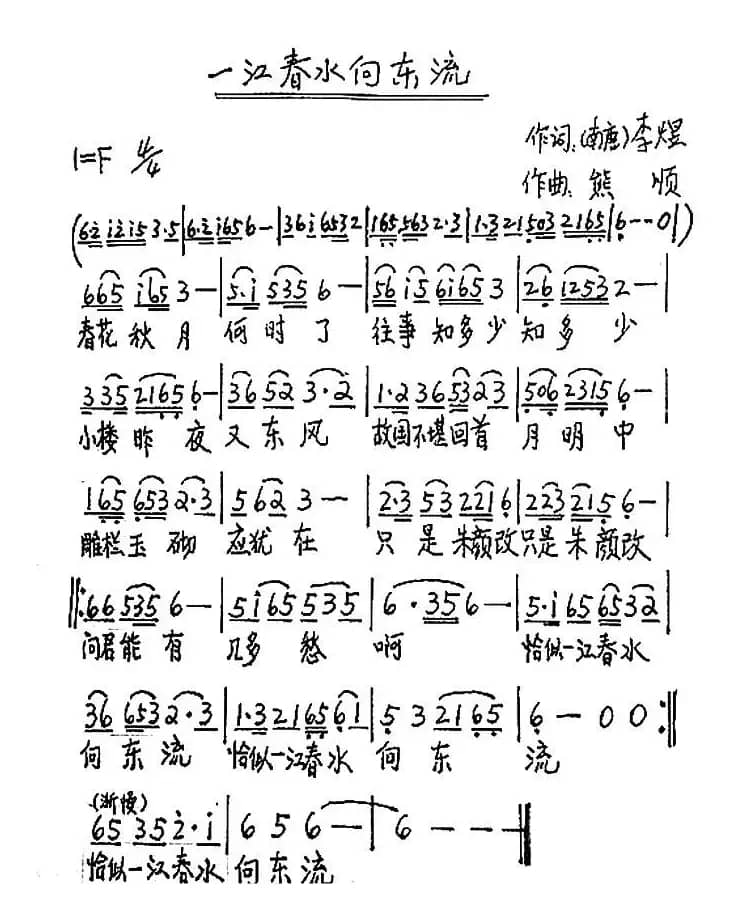 一江春水向东流
1=F 4/4
作词:(南唐)李煜
作曲:熊 顺
(6·2 i2i5 3·5|6·2 i656-|36i 6532|165 563 2·3|1·3 21503 2165|6--0|)
665 i65 3-|5·i 535 6-|56 i5 6i65 3|26 12532-|
春花 秋 月 何 时 了 往事 知多少 知 多 少
335 2165 6-|36 52 3·2|1·2 36 53 23|506 2315 6-|
小楼 昨 夜 又 东 风 故国不堪回首 月 明 中
165 6532·3|5 62 3-|2·3 53 2216|223 215 6-|
雕栏 玉 砌 应犹 在 只 是 朱颜改只是 朱 颜改
‖:66 535 6-|5i65 535|6·356-|5·i 65 6532|
问君能 有 几多 愁 啊 恰似一江春水
36 6532·3|1·3 21 65 61|5 3 2165|6-00:‖
向 东 流 恰似一江春水 向 东 流
(渐慢)
65 35 2·i|6 5 6-|6---‖
恰似一江春水 向东流